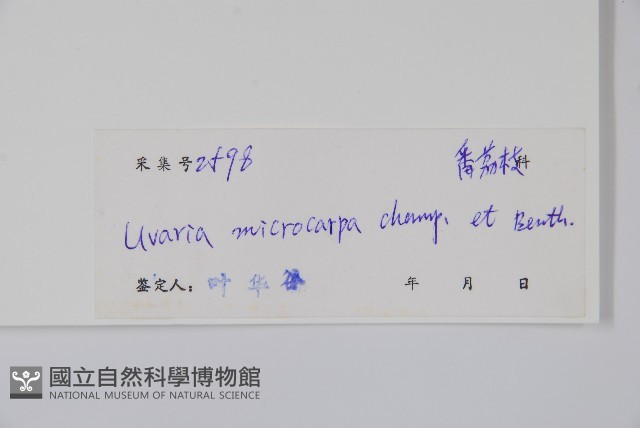 采集号 2598 番荔枝科
Uvaria microcarpa champ. et Benth.
鉴定人: 叶华谷 年 月 日
國立自然科學博物館
NATIONAL MUSEUM OF NATURAL SCIENCE